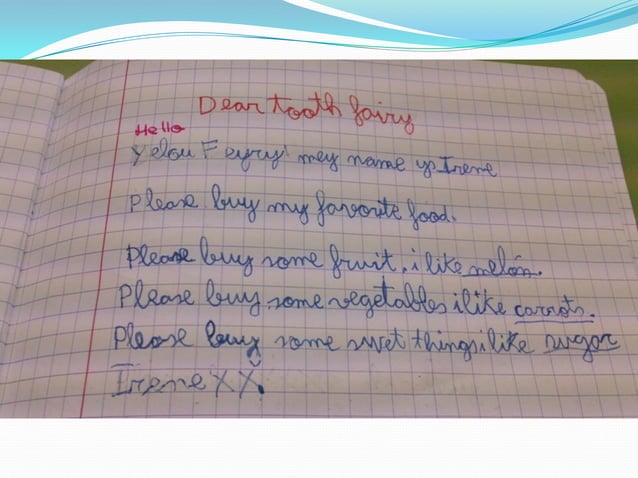 Dear tooth fairy
Hello
Yelou Feyry! mey name ys Irene
Please buy my favorite food.
Please buy some fruit. i like melón.
Please buy some vegetables i like carrots.
Please buy some swet things i like sugar
Irene XX.